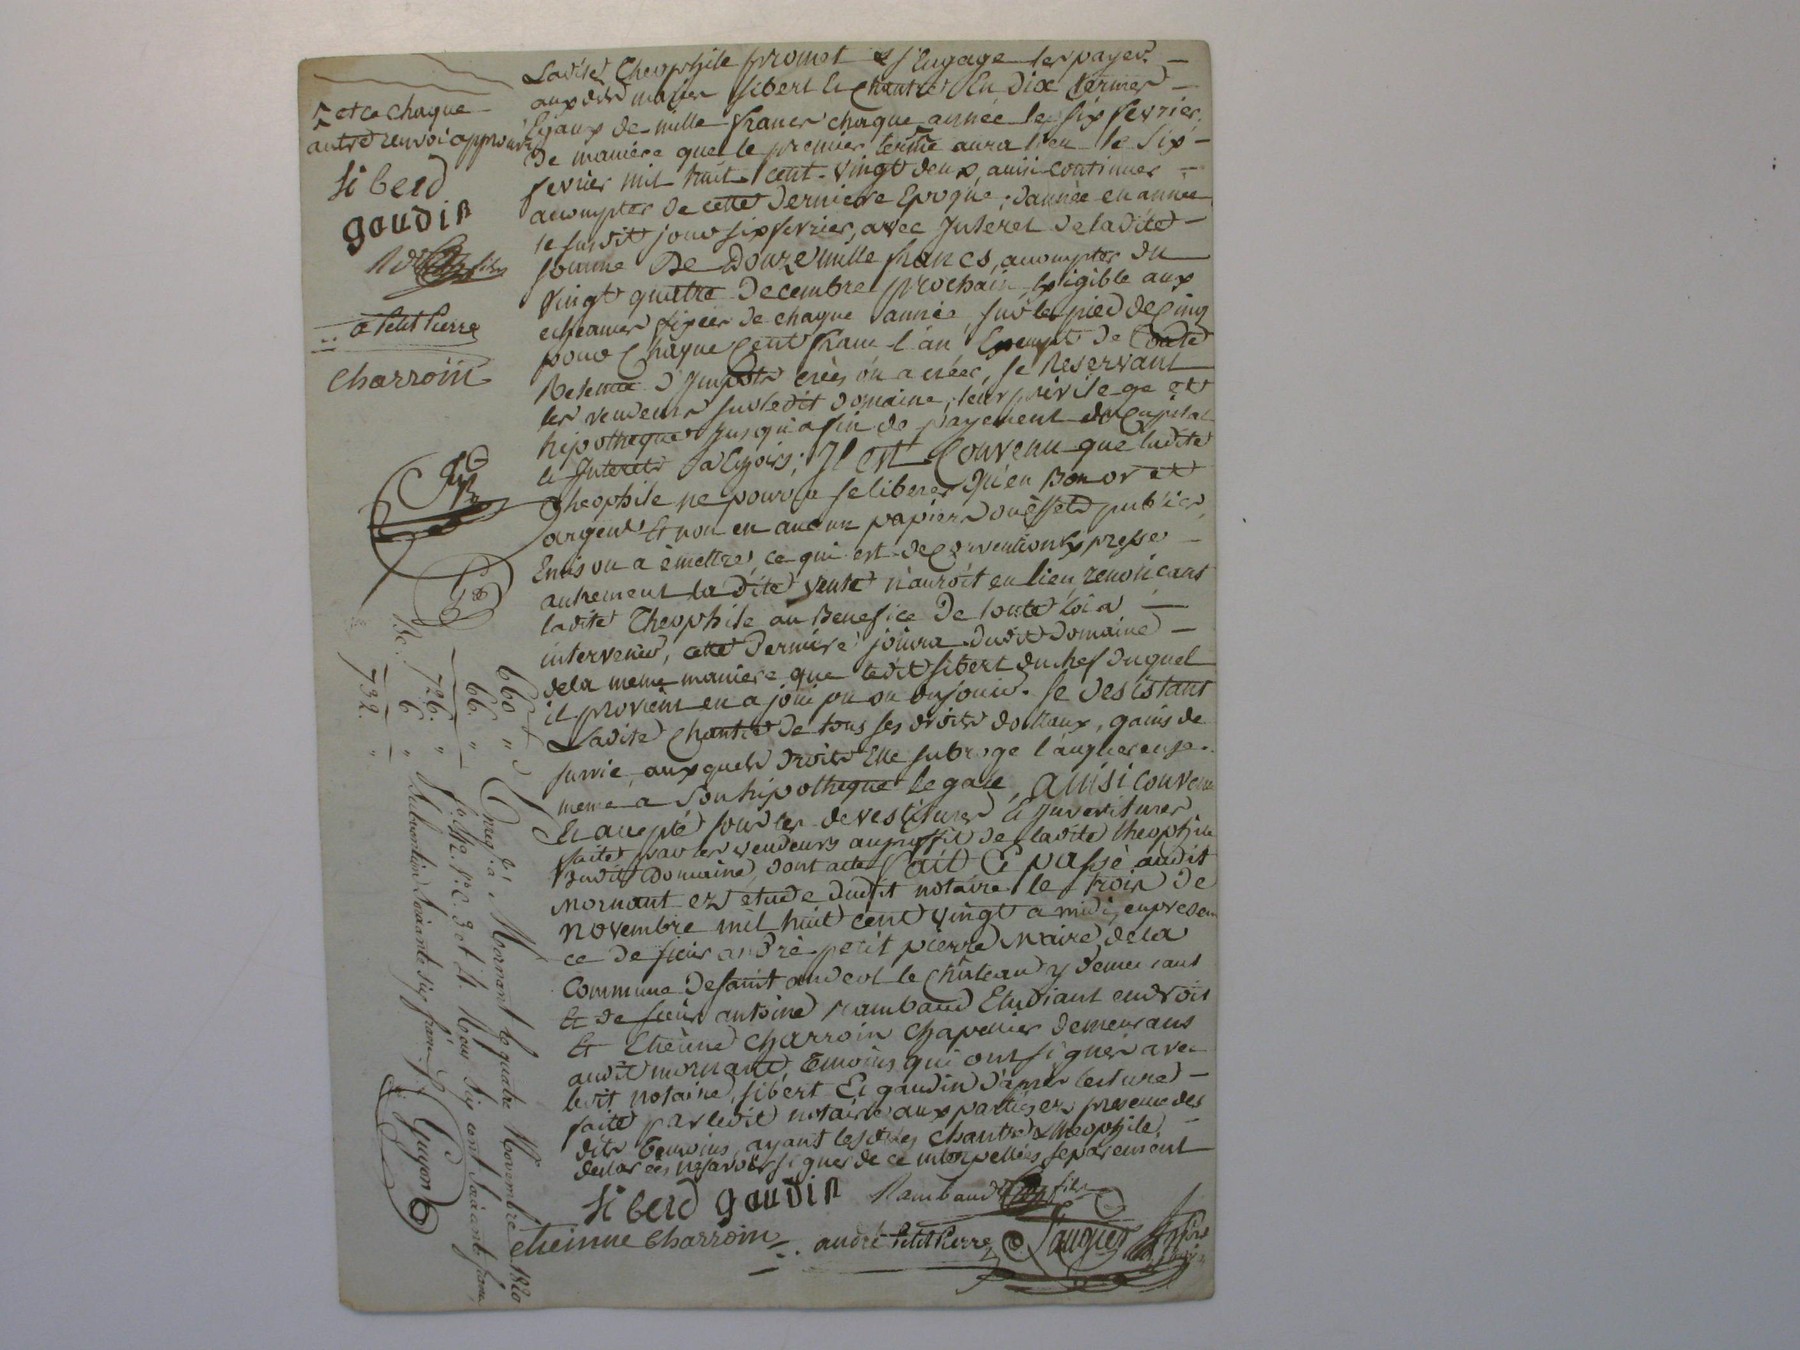 et ce chaque
autre renvoi approuvé
siberd
gaudin
fils
a petit Pierre
Charroin
Ladite Theophile promet & s'Engage les payer
auxdits mariés sibert & Chantre En dix termes
Egaux de mille francs chaque année les six fevrier
De maniére que le premier terme aura lieu le six
fevrier mil huit cent vingt deux, ainsi continuer
acompter de cette derniere Epoque, d'année en année
le susdit jour six fevrier, avec Interet de ladite
somme De Douze mille francs, acompter du
vingt quatre decembre prochain, Exigible aux
echeances fixées de chaque année, sur le pied de cinq
pour Chaque Cent francs l'an Exempte de toute
Retenue d'Impots créés ou a créér, se Reservant
les vendeurs sur ledit domaine, leur privilege et
hipotheque jusqu'a fin de payement du Capital
& Interets a Ligoirs; Il est Convenu que ladite
Theophile ne pourra se liberer qu'en Bon or et
argent Et non en aucun papiers ou effets publics
Emis ou a émettre, ce qui est de convention Expresse
autrement la dite vente n'auroit eu lieu renoncant
ladite Theophile au Benefice De toute Loi a
intervenir, cette Derniére jouira dudit Domaine
de la meme maniére que ledit sibert du chef duquel
il provient en a joui pu ou du jouir. se desistant
Ladite Chantre de tous ses droits dotaux, gains de
survie, auxquels droits Elle subroge l'acquereuse
meme a son hipotheque legale, ainsi convenu
Et accepté sous les devestitures & Investitures
faites par les vendeurs au proffit de ladite theophile
dudit Domaine, dont acte fait & passé audit
Mornant ez etude dudit notaire le trois de
novembre mil huit cent vingt a midi, en presen
ce de sieur andré petit pierre Maire de la
Commune de saint andeol le Chateau y demeurant
Et de sieur antoine Rambaud Etudiant en droit
Et Etienne Charroin chapellier demeurans
audit mornant, temoins qui ont signés avec
ledit notaire, sibert Et gaudin d'après lecture
faite par ledit notaire aux parties en presence des
dits temoins, ayant lesdites chantre & theophile
declarées ne savoir signer de ce interpellées séparément
siberd gaudin Rambaud fils
etienne Charroin andré petit Pierre
660 "
66. "
726. "
6 "
732. "
Enreg.é a Mornant le quatre Novembre 1820
f.o V.o C. 3 et 4. Reçu six cent soixante francs,
Subvention soixante six francs.
Guyon